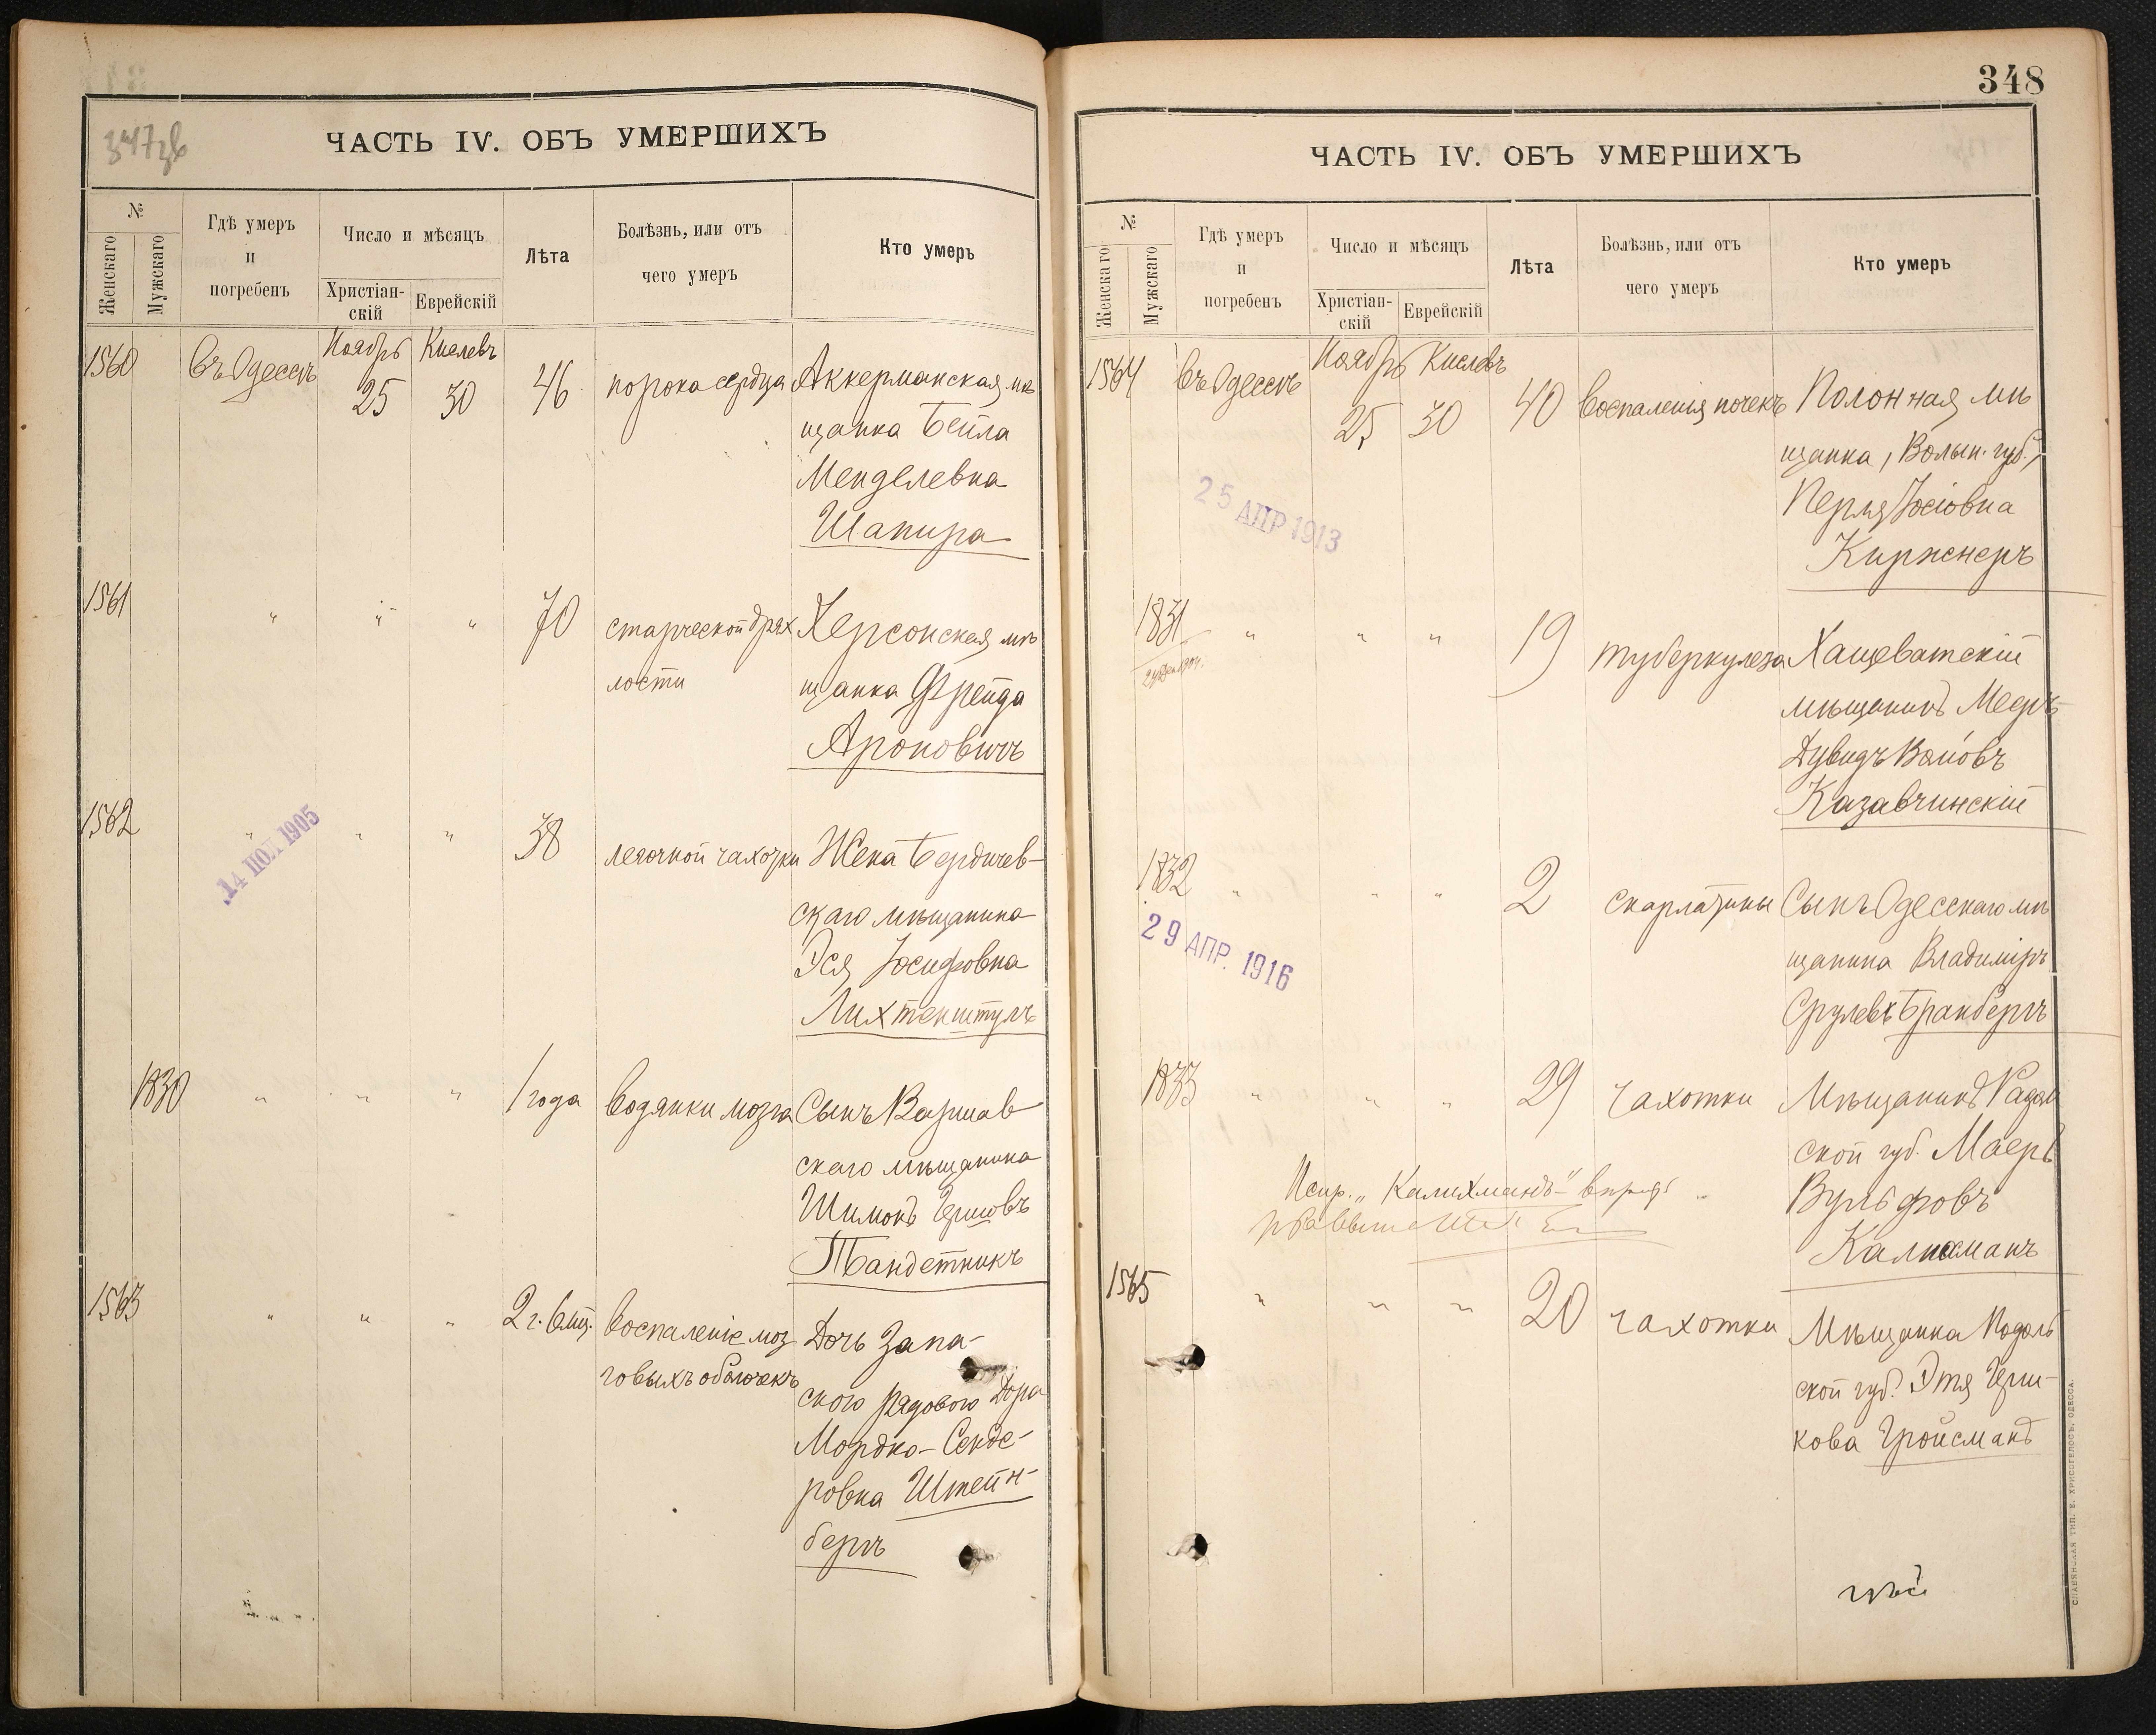 347зв
ЧАСТЬ IV. ОБЪ УМЕРШИХЪ
№
Женскаго
Мужскаго
Гдѣ умеръ
и
погребенъ
Число и мѣсяцъ
Христіан-
скій
Еврейскій
Лѣта
Болѣзнь, или отъ
чего умеръ
Кто умеръ
1560
Въ Одессѣ
Ноябрь
25
Кислевъ
30
46
порока сердца
Аккерманская мѣ
щанка Бейла
Менделевна
Шапира
1561
"
"
"
70
старческой дрях
лости
Херсонская мѣ
щанка Фрейда
Ароновичъ
1562
"
"
"
38
легочной чахотки
Жена Бердичев-
скаго мѣщанина
Эся Іосифовна
Лихтенштулъ
14 ІЮЛ 1905
1830
"
"
"
1 года
водянки мозга
Сынъ Варшав
скаго мѣщанина
Шимонъ Гершовъ
Тандетникъ
1563
"
"
"
2 г. 6 мѣ.
воспаленіе моз
говыхъ оболочекъ
Дочь Запа-
сного рядового Дора
Мордко-Сенде-
ровна Штейн-
бергъ
348
ЧАСТЬ IV. ОБЪ УМЕРШИХЪ
№
Женскаго
Мужскаго
Гдѣ умеръ
и
погребенъ
Число и мѣсяцъ
Христіан-
скій
Еврейскій
Лѣта
Болѣзнь, или отъ
чего умеръ
Кто умеръ
1564
Въ Одессѣ
Ноябрь
25
Кислевъ
30
40
воспаленія почекъ
Полонная мѣ
щанка, Волын. губ.,
Перля Іосіовна
Киржнеръ
25 АПР 1913
1831
"
"
"
19
туберкулеза
Хащеватскій
мѣщанинъ Мееръ-
Дувидъ Волковъ
Казавчинскій
1832
"
"
"
2
скарлатины
Сынъ Одесскаго мѣ
щанина Владиміръ
Срулевъ Бранбергъ
29 АПР. 1916
1833
"
"
"
29
чахотки
Мѣщанинъ Радом
ской губ. Маеръ
Вульфовъ
Калихманъ
Испр. "Калихманъ"
1565
"
"
"
20
чахотки
Мѣщанка Подоль
ской губ. Этя Герш-
кова Гройсманъ
СЛАВЯНСКАЯ ТИП. Е. ХРИСОГЕЛОСЪ, ОДЕССА.